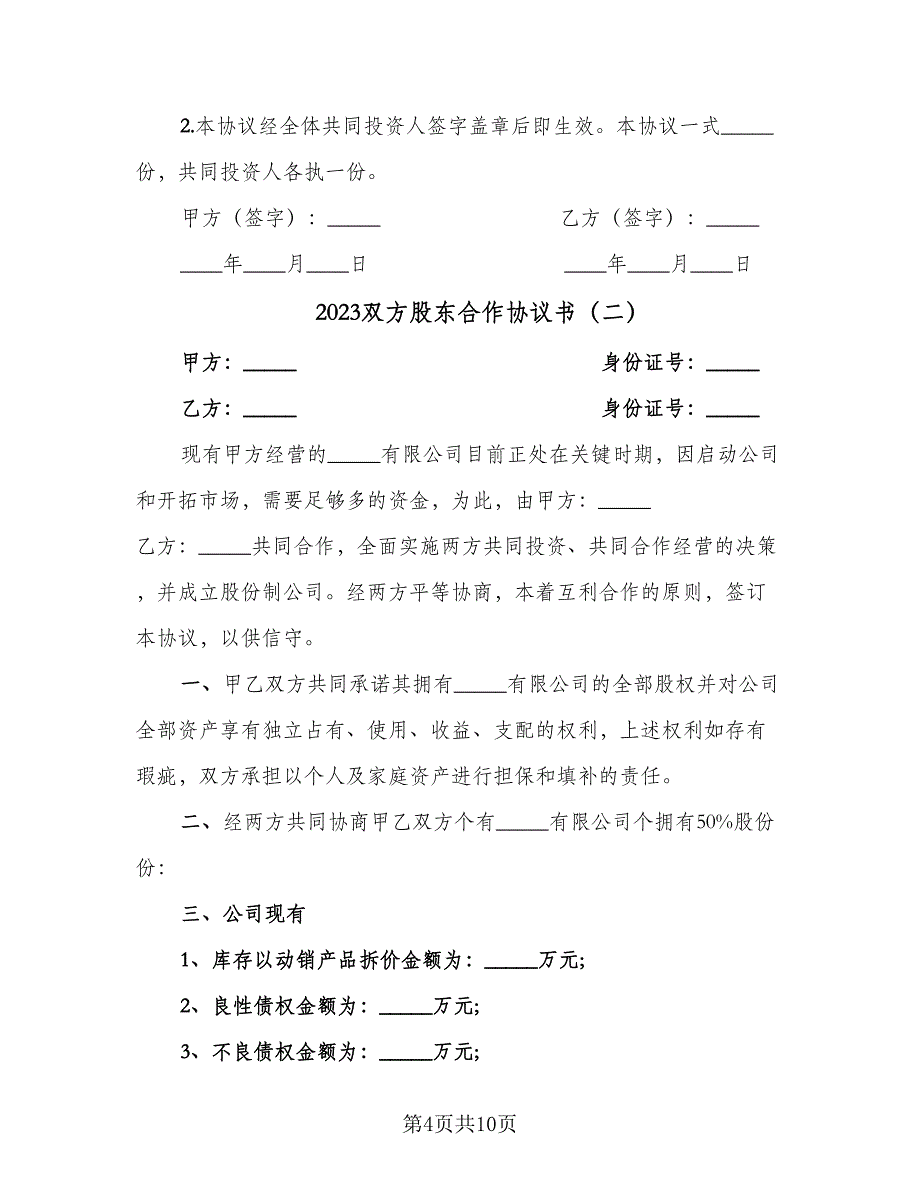 2.本协议经全体共同投资人签字盖章后即生效。本协议一式_____
份，共同投资人各执一份。
甲方（签字）：_____ 乙方（签字）：_____
____年____月____日 ____年____月____日
2023双方股东合作协议书（二）
甲方：_____ 身份证号：_____
乙方：_____ 身份证号：_____
现有甲方经营的_____有限公司目前正处在关键时期，因启动公司
和开拓市场，需要足够多的资金，为此，由甲方：_____
乙方：_____共同合作，全面实施两方共同投资、共同合作经营的决策
，并成立股份制公司。经两方平等协商，本着互利合作的原则，签订
本协议，以供信守。
一、甲乙双方共同承诺其拥有_____有限公司的全部股权并对公司
全部资产享有独立占有、使用、收益、支配的权利，上述权利如存有
瑕疵，双方承担以个人及家庭资产进行担保和填补的责任。
二、经两方共同协商甲乙双方个有_____有限公司个拥有50%股份
份：
三、公司现有
1、库存以动销产品拆价金额为：_____万元;
2、良性债权金额为：_____万元;
3、不良债权金额为：_____万元;
第4页共10页